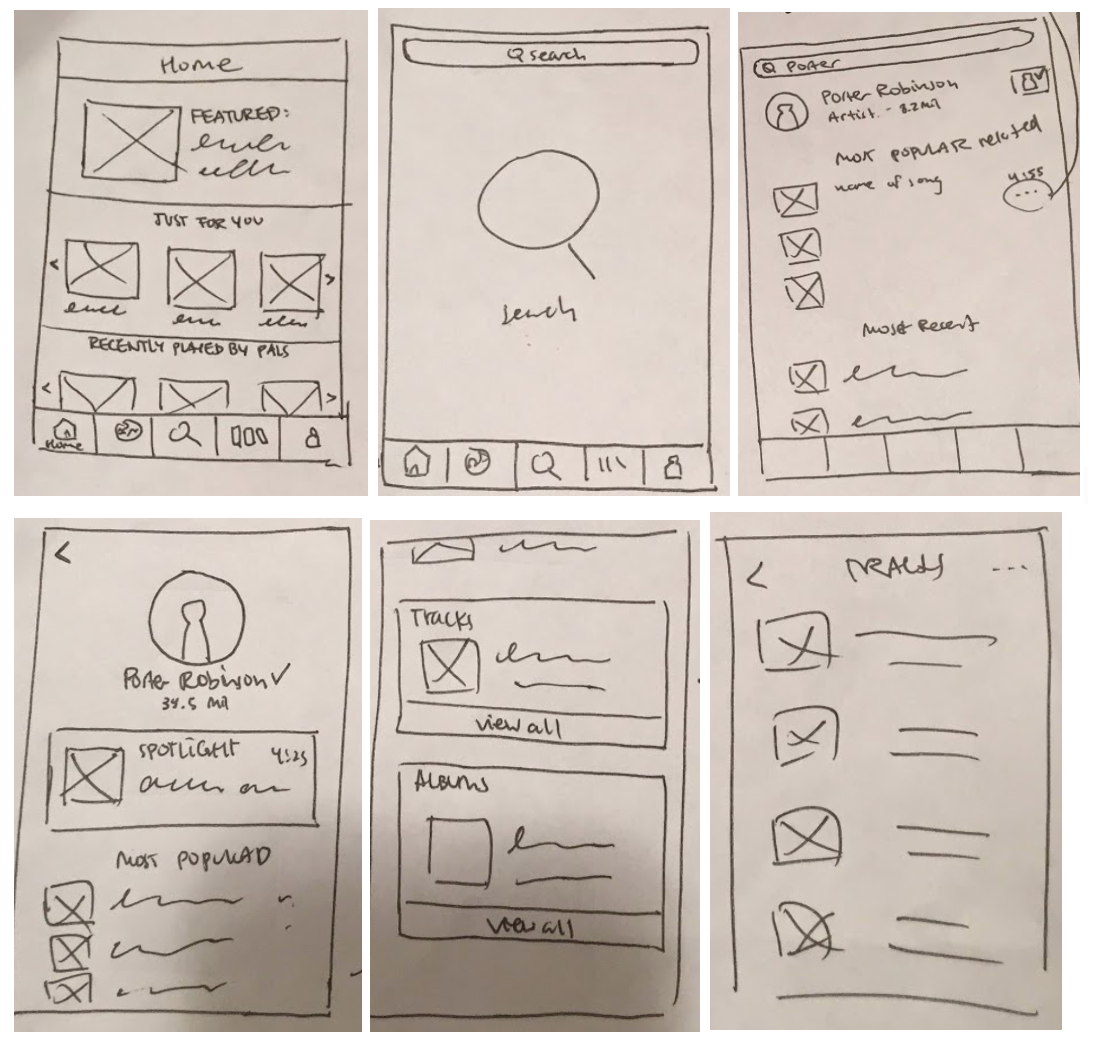 Home
FEATURED:
JUST FOR YOU
RECENTLY PLAYED BY PALS
Home
search
search
Porter
Porter Robinson
Artist - 8.2 Mil
MOST POPULAR related
name of song
4:55
...
Most Recent
Porter Robinson
34.5 Mil
SPOTLIGHT 4:25
MOST POPULAR
Tracks
view all
Albums
view all
...